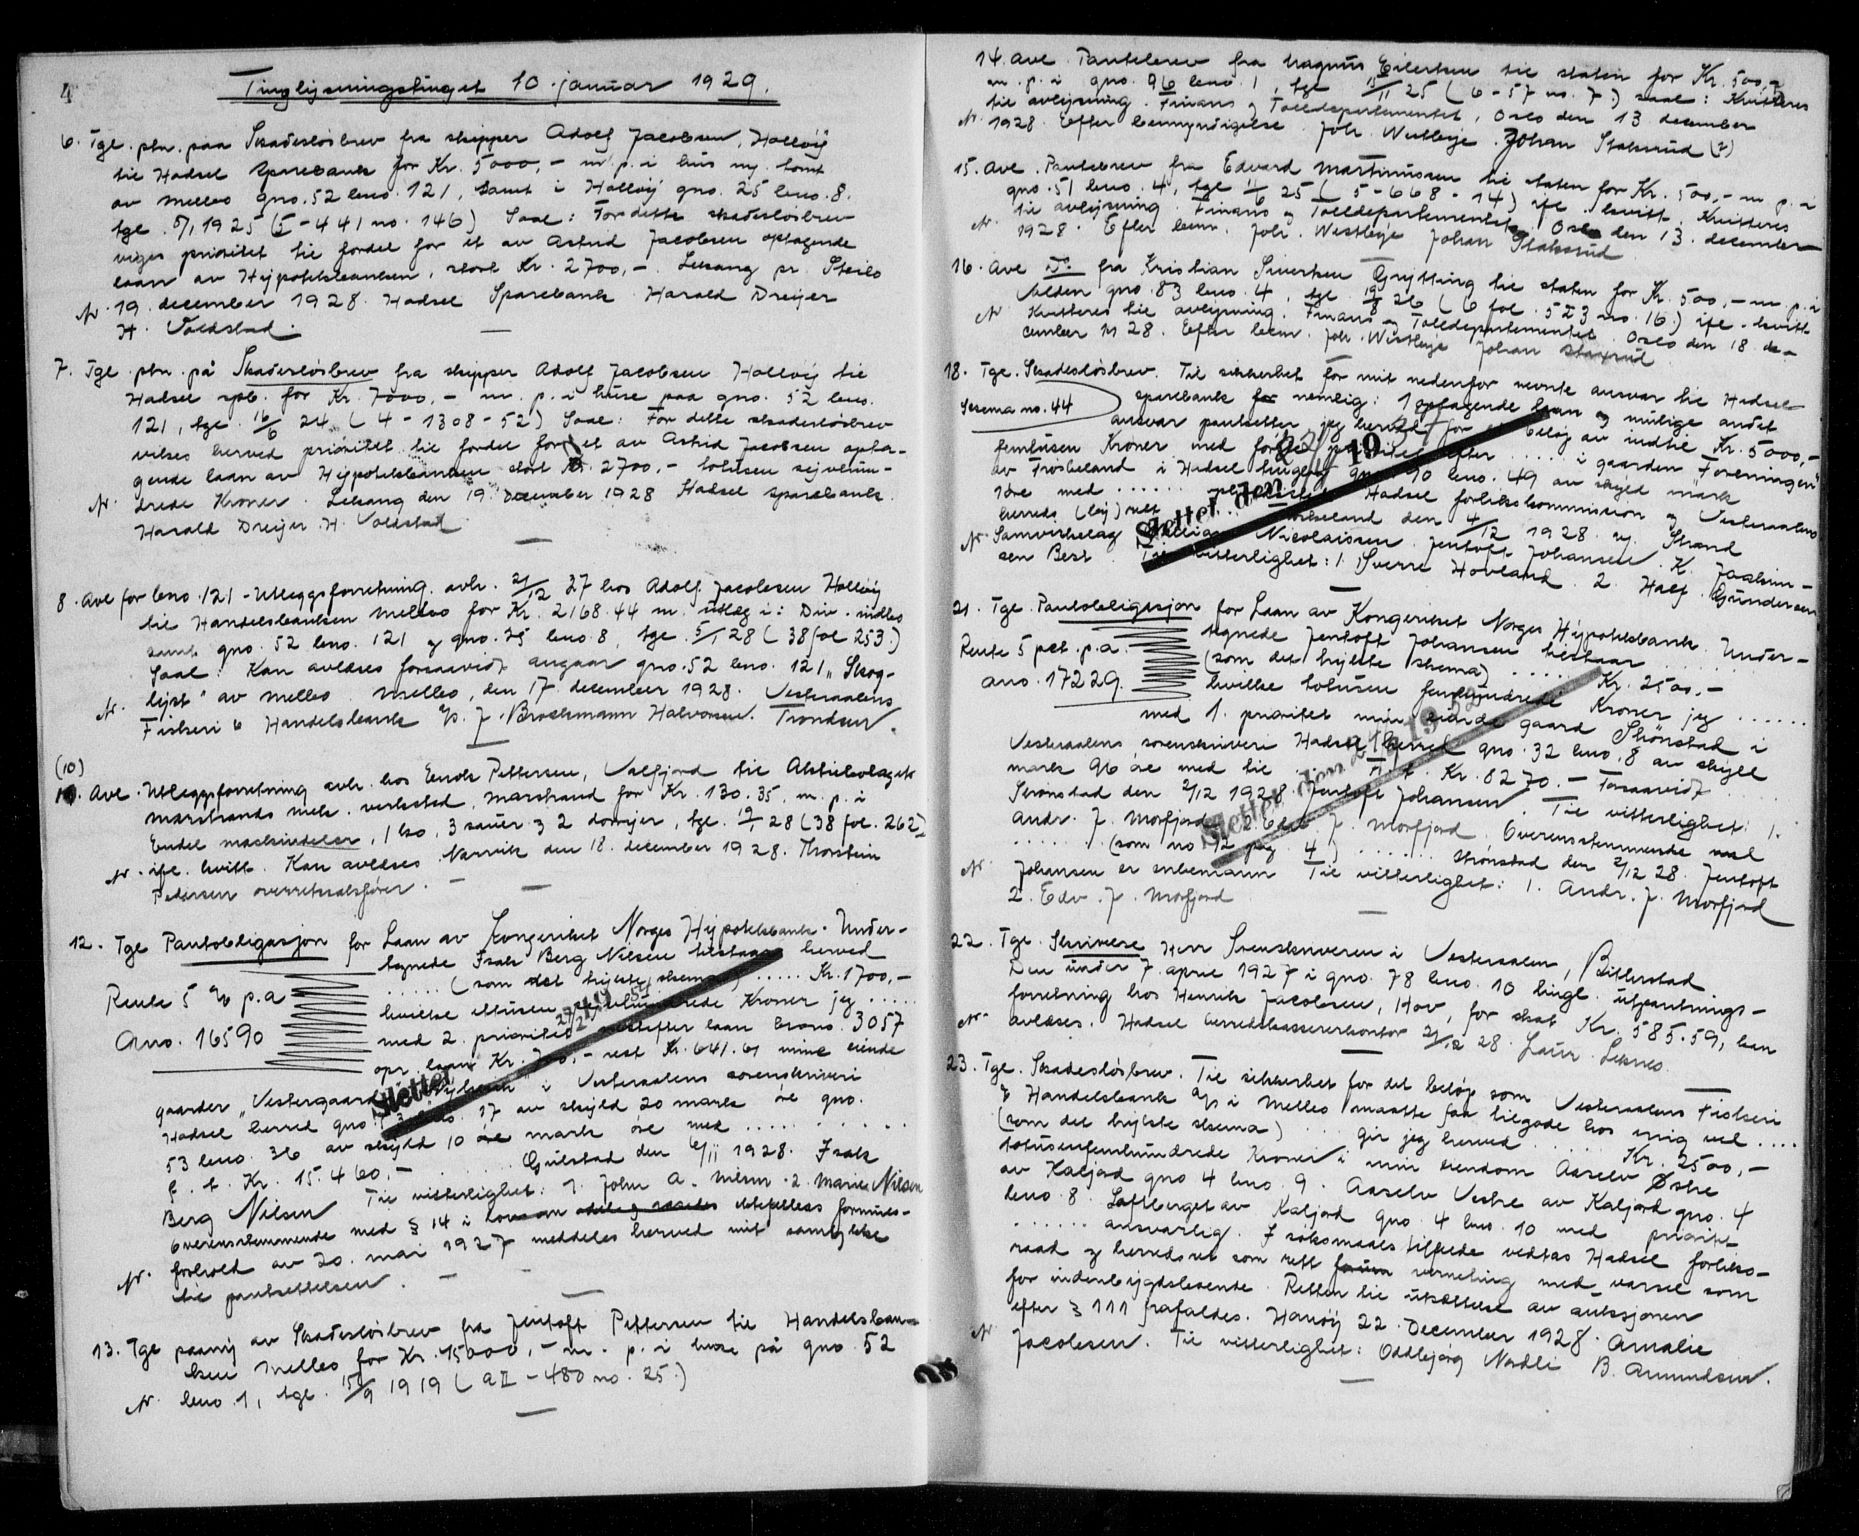 4
Tinglysningstinget 10. januar 1929.
6. Tgl. ptn. paa Skadesløsbrev fra skipper Adolf Jacobsen, Holløy
til Hadsel Sparebank for Kr. 5000,- m. p. i hus m. tomt
av Melbo gno. 52 bno. 121, samt i Holløy gno. 25 bno. 8.
tgl. 5/1 1925 (5-441 no. 146) Saal: For dette skadesløsbrev
viges prioritet til fordel for et av Astrid Jacobsen optagende
laan av Hypotekbanken, stort Kr. 2700,-. Leksang pr. Steilo
N. 19. december 1928. Hadsel Sparebank. Harald Dreyer
H. Voldstad.
7. Tgl. ptn. på Skadesløsbrev fra skipper Adolf Jacobsen Holløy til
Hadsel spb. for Kr. 7000,- m. p. i huse paa gno. 52 bno.
121, tgl. 16/6 24 (4-1308-52) Saal: For dette skadesløsbrev
vikes herved prioritet til fordel for et av Astrid Jacobsen opta-
gende laan av Hypotekbanken stort Kr. 2700,- totusen syvhun-
N. drede Kroner. Leksang den 19. december 1928 Hadsel sparebank.
Harald Dreyer. H. Voldstad
8. Avl for bno. 121 - Utleggsforretning avh. 21/12 27 hos Adolf Jacobsen Holløy
til Handelsbanken Melbo for Kr. 2168.44 m. utlæg i: Div. indbo
samt gno. 52 bno. 121 og gno. 25 bno. 8, tgl. 5/1 28 (38 fol 253.)
Saal: Kan avlæses forsaavidt angaar gno. 52 bno. 121 "Skog-
N. lyst" av Melbo. Melbo, den 17 december 1928. Vesteraalens
Fiskeri & Handelsbank A/S. J. Brochmann Halvorsen. Trondsen.
(10)
Avl. Utleggsforretning avh. hos Enok Pettersen, Valfjord til Aktiebolaget
Marstrands mek. verksted, Marstrand for Kr. 130.35, m. p. i
Endel maskindeler, 1 ko, 3 sauer og 2 dorryer, tgl. 19/1 28 (38 fol. 262)
N. ifl. kvitt. Kan avlæses. Narvik den 18. december 1928. Thorstein
Pedersen overretssakfører.
12. Tgl Pantobligasjon for Laan av Kongeriket Norges Hypotekbank. Under-
tegnede Isak Berg Nilsen tilstaar herved
..... (som det trykte skema) ..... Kr. 1700,-
Rente 5 % p.a hvilke ettusen syvhundrede Kroner jeg .....
Ano. 16590 med 2. prioritet næstefter laan bnono. 3057
opr. laan Kr. 700,- rest Kr. 641.61 mine eiende
Slettet 27/2 19
gaarder "Vestergaard" "Nylænde" i Vesteraalens sorenskriveri
Hadsel herred gno. 53 bno. 17 av skyld 20 mark øre gno.
53 bno. 36 av skyld 10 øre mark øre med ..........
f. t. Kr. 15.460,- ..... Gulstad den 6/11 1928. Isak
Berg Nilsen Til vitterlighet: 1. John A. Nilsen. 2. Marie Nilsen
Overensstemmende med § 14 i ektefellers formues-
N. forhold av 20. mai 1927 meddeles herved mit samtykke
til pantsettelsen.
13. Tgl paany av Skadesløsbrev fra Jentoft Pettersen til Handelsban-
ken Melbo for Kr. 15000,- m. p. i huse på gno. 52
N. bno. 1, tgl. 15/9 1919 (a II - 480 no. 25.)
14. Avl. Pantebrev fra Magnus Eilertsen til staten for Kr. 500,-
m. p. i gno. 96 bno. 1, tgl 11/11 25 (6-57 no. 7.) saal: Kvitteres
til avlysning. Finans og Tolldepartementet, Oslo den 13 december
N. 1928. Efter bemyndigelse. Joh. Westbye. Johan Staksrud (?)
15. Avl. Pantebrev fra Edvard Martinussen til staten for Kr. 500,- m. p. i
gno. 51 bno. 4, tgl 4/6 25 (5-668-14) ifl. kvitt. Kvitteres
til avlysning. Finans og Tolldepartementet, Oslo den 13. december
N. 1928. Efter bem. Joh. Westbye Johan Staksrud
16. Avl Do fra Kristian Sivertsen Grytting til staten for Kr. 500,- m. p. i
Valden gno. 83 bno. 4, tgl. 19/8 26 (6 fol. 523 no. 16) ifl. kvitt
N. Kvitteres til avlysning. Finans og Tolldepartementet. Oslo den 18. de-
cember 1928. Efter bem. Joh. Westbye Johan Staksrud
18. Tgl. Skadesløsbrev. Til sikkerhet for mit nedenfor nevnte ansvar til Hadsel
Skema no. 44 sparebank for nemlig: 1 optagende laan og mulige andet
ansvar pantsetter jeg herved for et beløp av indtil Kr. 5000,-
femtusen Kroner med første prioritet efter ..... i gaarden "Foreningen"
av Frøskeland i Hadsel tinglag gno. 90 bno. 49 av skyld mark
Slettet den 19
øre med ........ Hadsel forlikskommission og Vesteraalens
herreds (by) rett ..... Frøskeland den 4/12 1928. og. Strand
N. Samvirkelag Nicolaisen Jentoft Johansen. K. Joakim-
sen Best. Til vitterlighet: 1. Sverre Hovland. 2. Half. Gundersen
21. Tgl. Pantobligasjon for Laan av Kongeriket Norges Hypotekbank. Under-
tegnede Jentoft Johansen tilstaar .....
Rente 5 pct. p.a. (som det trykte skema) ..... Kr. 2500,-
ano. 17229. hvilke totusen femhundrede Kroner jeg ......
med 1. prioritet min eiende gaard Skrønstad i
Vesteraalens sorenskriveri Hadsel herred gno. 32 bno. 8 av skyld
mark 96 øre med til ..... f. t. Kr. 8270,- Forsaavidt
Slettet den 19
Skrønstad den 2/12 1928. Jentoft Johansen. Til vitterlighet: 1.
Andr. J. Morfjord. 2. Edv. J. Morfjord. Overensstemmende med
....... (som no 12 pag. 4) ....... Skrønstad den 2/12 28. Jentoft
N. Johansen er enkemann Til vitterlighet: 1. Andr. J. Morfjord
2. Edv. J. Morfjord
22. Tgl. Skrivelse Herr Sorenskriveren i Vesteraalen, Bitterstad
Den under 7. april 1927 i gno. 78 bno. 10 tingl. utpantnings-
forretning hos Henrik Jacobsen, Hov, for skat Kr. 585.59, kan
N. avlæses. Hadsel herredskassererkontor 21/12 28. Laur. Leknes.
23. Tgl. Skadesløsbrev. Til sikkerhet for det beløp som Vesteraalens Fiskeri
& Handelsbank A/S i Melbo maatte faa tilgode hos mig ved ....
(som det trykte skema) ... gir jeg herved ..... Kr. 2500,-
totusenfemhundrede Kroner i min eiendom Aarselv Østre
av Kaljord gno 4 bno. 9. Aarselv Vestre av Kaljord gno. 4
bno. 8. Loftberget av Kaljord gno. 4 bno. 10 med prioritet
...... ansvarlig. I søksmaals tilfelde vedtas Hadsel forliks-
raad og herredsret som rett verneting med varsel som
for indenbygdsboende. Retten til utsættelse av auksjonen
efter § 111 frafaldes. Hanøy 22. December 1928. Amalie
N. Jacobsen. Til vitterlighet: Oddbjørg Nordli B. Amundsen.